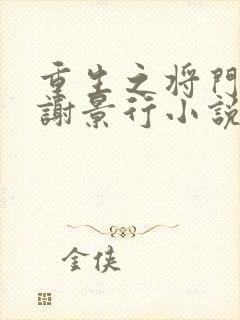 重生之将門
謝景行小説
金俠